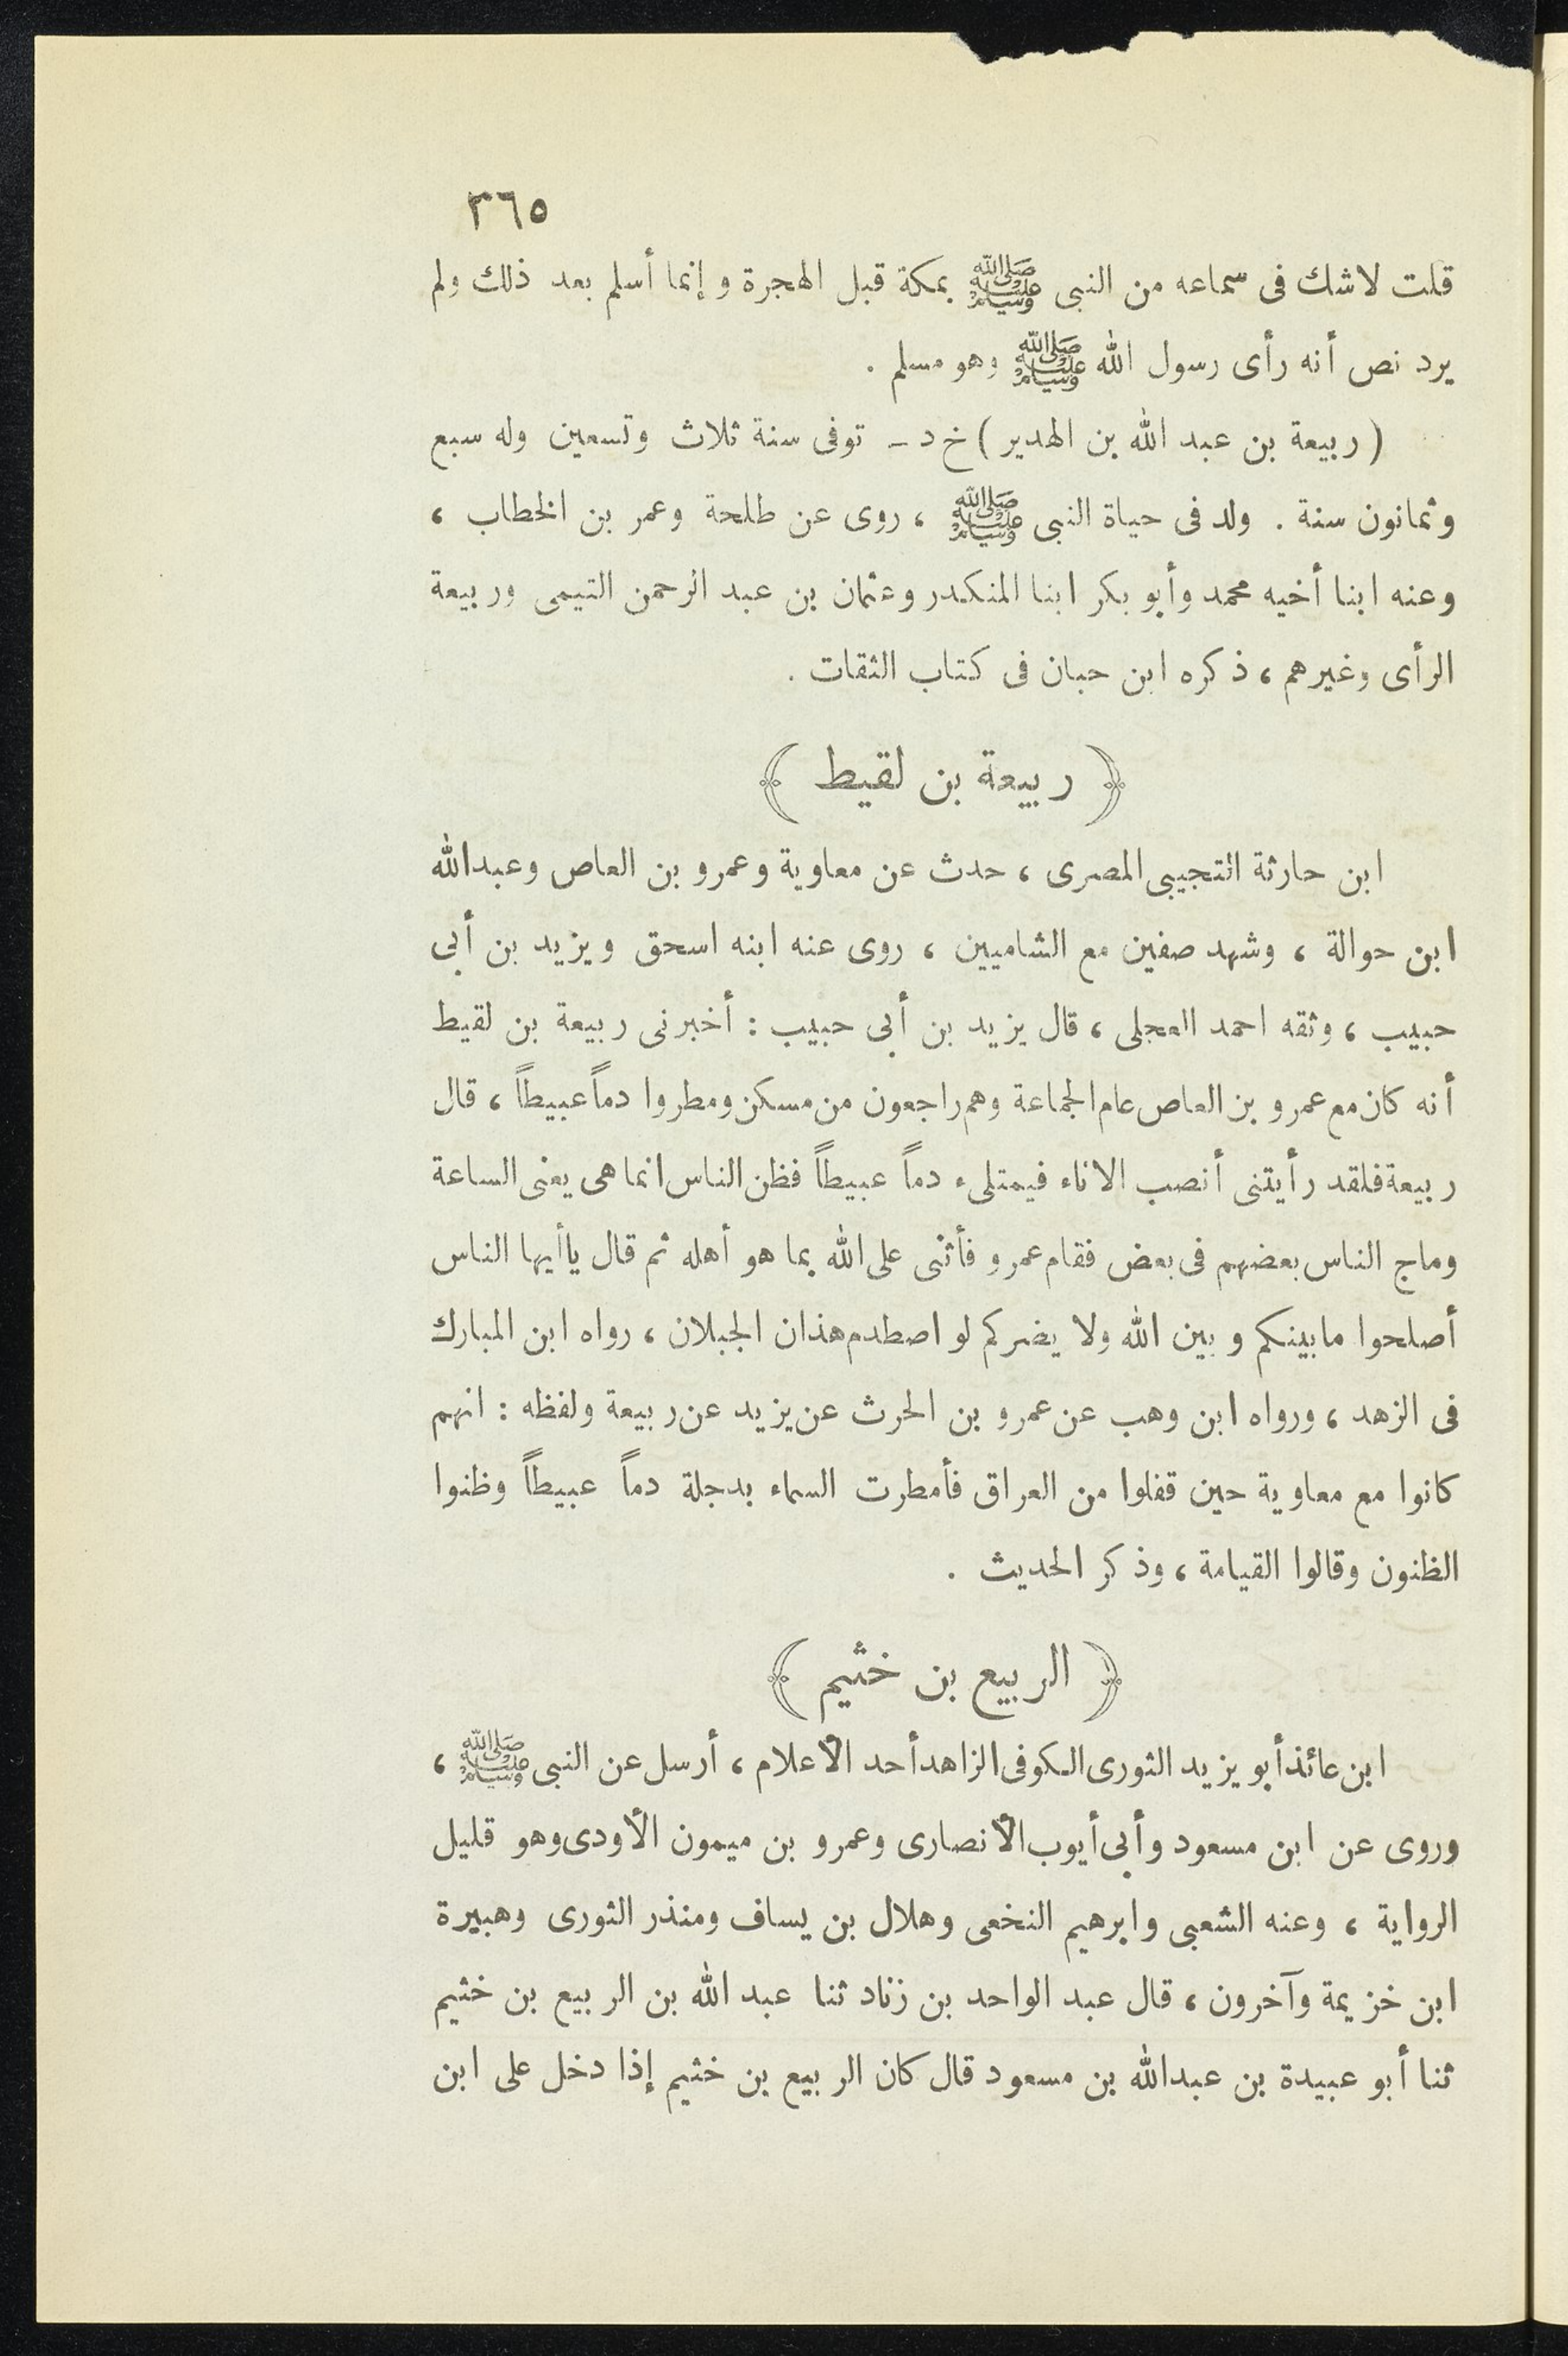 ٣٦٥
قلت لاشك فى سماعه من النبى ﷺ بمكة قبل الهجرة وإنما أسلم بعد ذلك ولم
يرد نص أنه رأى رسول الله ﷺ وهو مسلم .
(ربيعة بن عبد الله بن الهدير) خ د ـ توفى سنة ثلاث وتسعين وله سبع
وثمانون سنة . ولد فى حياة النبى ﷺ ، روى عن طلحة وعمر بن الخطاب ،
وعنه ابنا أخيه محمد وأبو بكر ابنا المنكدر وعثمان بن عبد الرحمن التيمى وربيعة
الرأى وغيرهم ، ذكره ابن حبان فى كتاب الثقات .
﴿ ربيعة بن لقيط ﴾
ابن حارثة التجيبى المصرى ، حدث عن معاوية وعمرو بن العاص وعبدالله
ابن حوالة ، وشهد صفين مع الشاميين ، روى عنه ابنه اسحق ويزيد بن أبى
حبيب ، وثقه احمد العجلى ، قال يزيد بن أبى حبيب : أخبرنى ربيعة بن لقيط
أنه كان مع عمرو بن العاص عام الجماعة وهم راجعون من مسكن ومطروا دماً عبيطاً ، قال
ربيعة فلقد رأيتنى أنصب الاناء فيمتلىء دماً عبيطاً فظن الناس انما هى يعنى الساعة
وماج الناس بعضهم فى بعض فقام عمرو فأثنى على الله بما هو أهله ثم قال ياأيها الناس
أصلحوا مابينكم وبين الله ولا يضركم لو اصطدم هذان الجبلان ، رواه ابن المبارك
فى الزهد ، ورواه ابن وهب عن عمرو بن الحرث عن يزيد عن ربيعة ولفظه : انهم
كانوا مع معاوية حين قفلوا من العراق فأمطرت السماء بدجلة دماً عبيطاً وظنوا
الظنون وقالوا القيامة ، وذكر الحديث .
﴿ الربيع بن خثيم ﴾
ابن عائذ أبو يزيد الثورى الكوفى الزاهد أحد الأعلام ، أرسل عن النبى ﷺ ،
وروى عن ابن مسعود وأبى أيوب الأنصارى وعمرو بن ميمون الأودى وهو قليل
الرواية ، وعنه الشعبى وابرهيم النخعى وهلال بن يساف ومنذر الثورى وهبيرة
ابن خزيمة وآخرون ، قال عبد الواحد بن زناد ثنا عبد الله بن الربيع بن خثيم
ثنا أبو عبيدة بن عبدالله بن مسعود قال كان الربيع بن خثيم إذا دخل على ابن